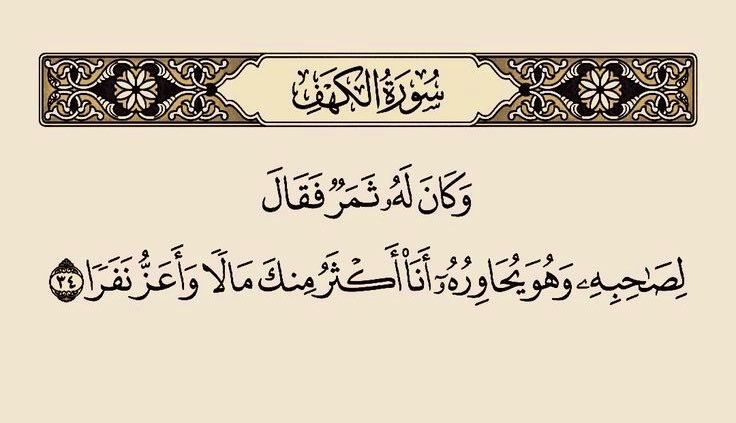 سُورَةُ الكَهۡفِ
وَكَانَ لَهُۥ ثَمَرٞ فَقَالَ
لِصَٰحِبِهِۦ وَهُوَ يُحَاوِرُهُۥٓ أَنَا۠ أَكۡثَرُ مِنكَ مَالٗا وَأَعَزُّ نَفَرٗا ٣٤